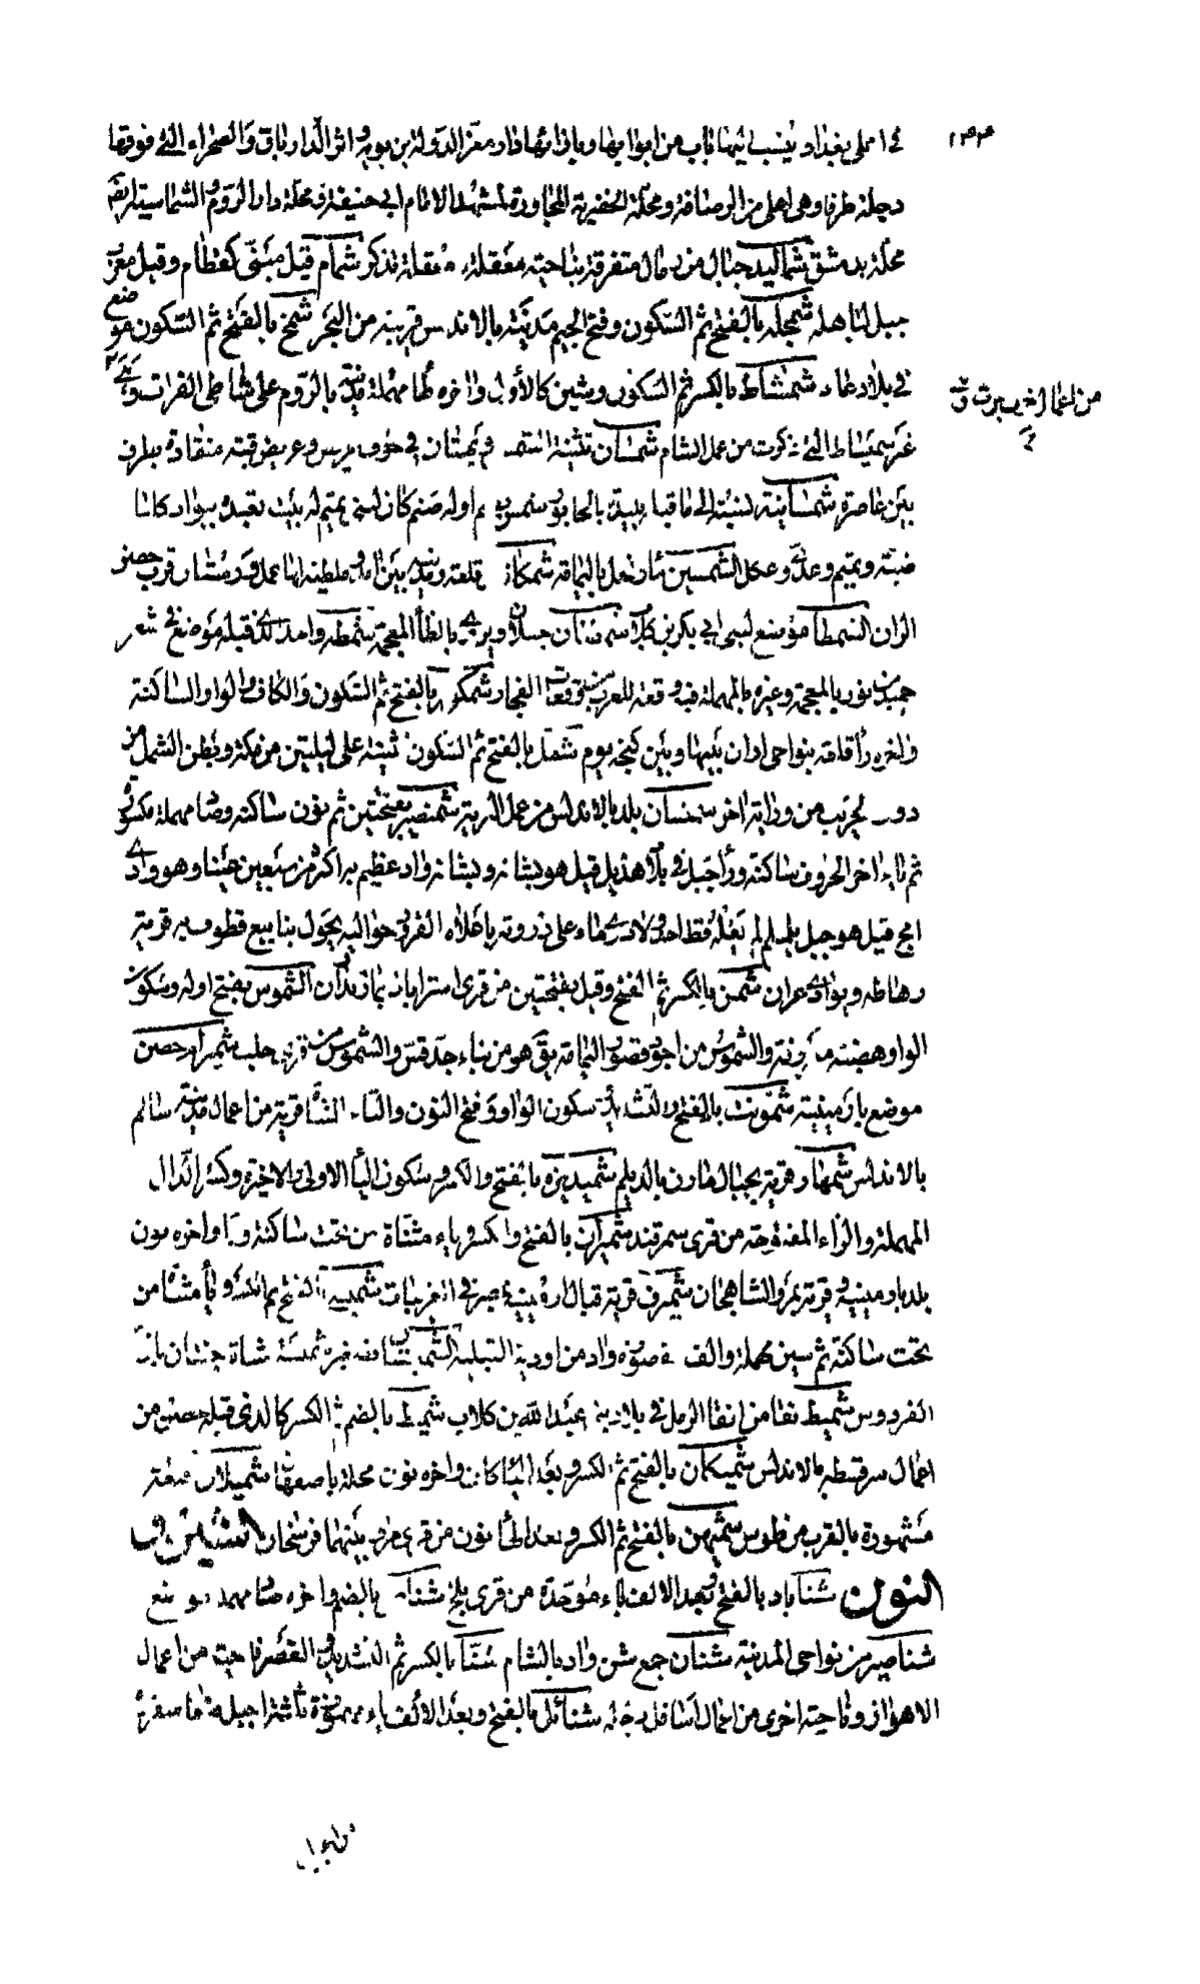 في اعلى بغداد ينسب اليها باب من ابوابها وبازائها دار معز الدولة بن بويه اثر الدار باق والصحراء التي فوقها
دجلة طرفا وهي اعلى من الرصافة ومحلة الخضيرية المجاورة لمشهد الامام ابي حنيفة ومحلة دار الروم والشماسية ايضا
محلة بدمشق شماليد جبال من رمال متفرقة بناحية معقلة معقلة تذكر شمام قيل مبني كقطام وقيل معرب
جبل لباهلة شمجله بالفتح ثم السكون وفتح الجيم مدينة بالاندلس قريبة من البحر شمخ بالفتح ثم السكون موضع
في بلاد عاد شمشاط بالكسر ثم السكون وشين كالأولى واخره طا مهملة مدينة بالروم على شاطي الفرات وهي
من اعمال خرت برت
غير سميساط التي ذكرت من عمل الشام شمسان تثنية الشمس مويهتان في جوف عريض وعريض قنة منقادة بطرف
بين غاضرة شمسانية نسبة الى ما قبلها بليدة بالخابور شمس بضم اوله صنم كان لبني تميم له بيت تعبده بنو اد كلها
ضبة وتميم وعدي وعكل الشمسين ماء ونخل باليمامة شمكاز قلعة ومدينة بين امد وملطية لها عمل ورستاق قرب حصن
الران الشمطا موضع لبني ابي بكر بن كلاب شمطتان جبلان ويروى بالظاء المعجمة شمطه واحد الذي قبله موضع في شعر
حميد بن ثور بالمعجمة وغيره بالمهملة فيه وقعة للعرب من وقعات الفجار شمكور بالفتح ثم السكون والكاف والواو الساكنة
واخره راء قلعة بنواحي اران بينها وبين كنجه يوم شمل بالفتح ثم السكون ثنية على ليلتين من مكة وبطن الشمل من
دون لجريب من وراية اخر شمنسان بلد بالاندلس من عمل المرية شمنصير بفتحتين ثم نون ساكنة وصاد مهملة مكسورة
ثم ياء اخر الحروف ساكنة وراء جبل في بلاد هذيل قيل هو بساية وساية واد عظيم به اكثر من سبعين عينا وهو وادي
امج قيل هو جبل بململم لم يعله قط احد ولا درى ماء على ذروته باعلاه القرود حواليه يحول ينابيع تطوف به قرية
رهاط وبوادي غران شمن بالكسر ثم الفتح وقيل بفتحتين من قرى استراباذ بمازندران الشموس بفتح اوله وسكون
الواو هضبة معروفة والشموس من اجود قصور اليمامة يق هو من بناء جديس والشموس من قرى حلب شميرام حصن
موضع بارمينية شمونت بالفتح والتشديد وسكون الواو وفتح النون والتاء المثناة قرية من اعمال مدينة سالم
بالاندلس شمهار قرية بجبال قارن بالديلم شميديزه بالفتح والكسر وسكون الياء الاولى والاخيرة وكسر الدال
المهملة والزاء المفتوحة من قرى سمرقند شميران بالفتح والكسر وياء مثناة من تحت ساكنة وراء واخره نون
بلد بارمينية وقرية بمرو الشاهجان شميرف قرية قبال ارمينية بمصر في الغربيات شميسى بالفتح ثم الكسر وياء مثناة من
تحت ساكنة ثم سين مهملة والف مقصورة واد من اودية القبلية الشميستان
الفردوس شميط نقا من انقا الرمل في بلاد بني عبد الله بن كلاب شميط بالضم ثم الكسر كالذي قبله حصن من
اعمال سرقسطة بالاندلس شميكان بالفتح ثم الكسر وبعد الياء كاف واخره نون محلة باصفهان شميلان قلعة
مشهورة بالقرب من طوس شميهن بالفتح ثم الكسر وبعد الهاء نون من قرى مرو بينهما فرسخان الشين و
النون شناباد بالفتح وبعد الالف باء موحدة من قرى بلخ شناص بالضم واخره صاد مهملة موضع
شناصير من نواحي المدينة شنان جمع شن واد بالشام شنّا بالكسر ثم التشديد والقصر ناحية من اعمال
الاهواز وناحية اخرى من اعمال اسافل دجلة شنائل بالفتح وبعد الالف ياء مهموزة
من اجبل